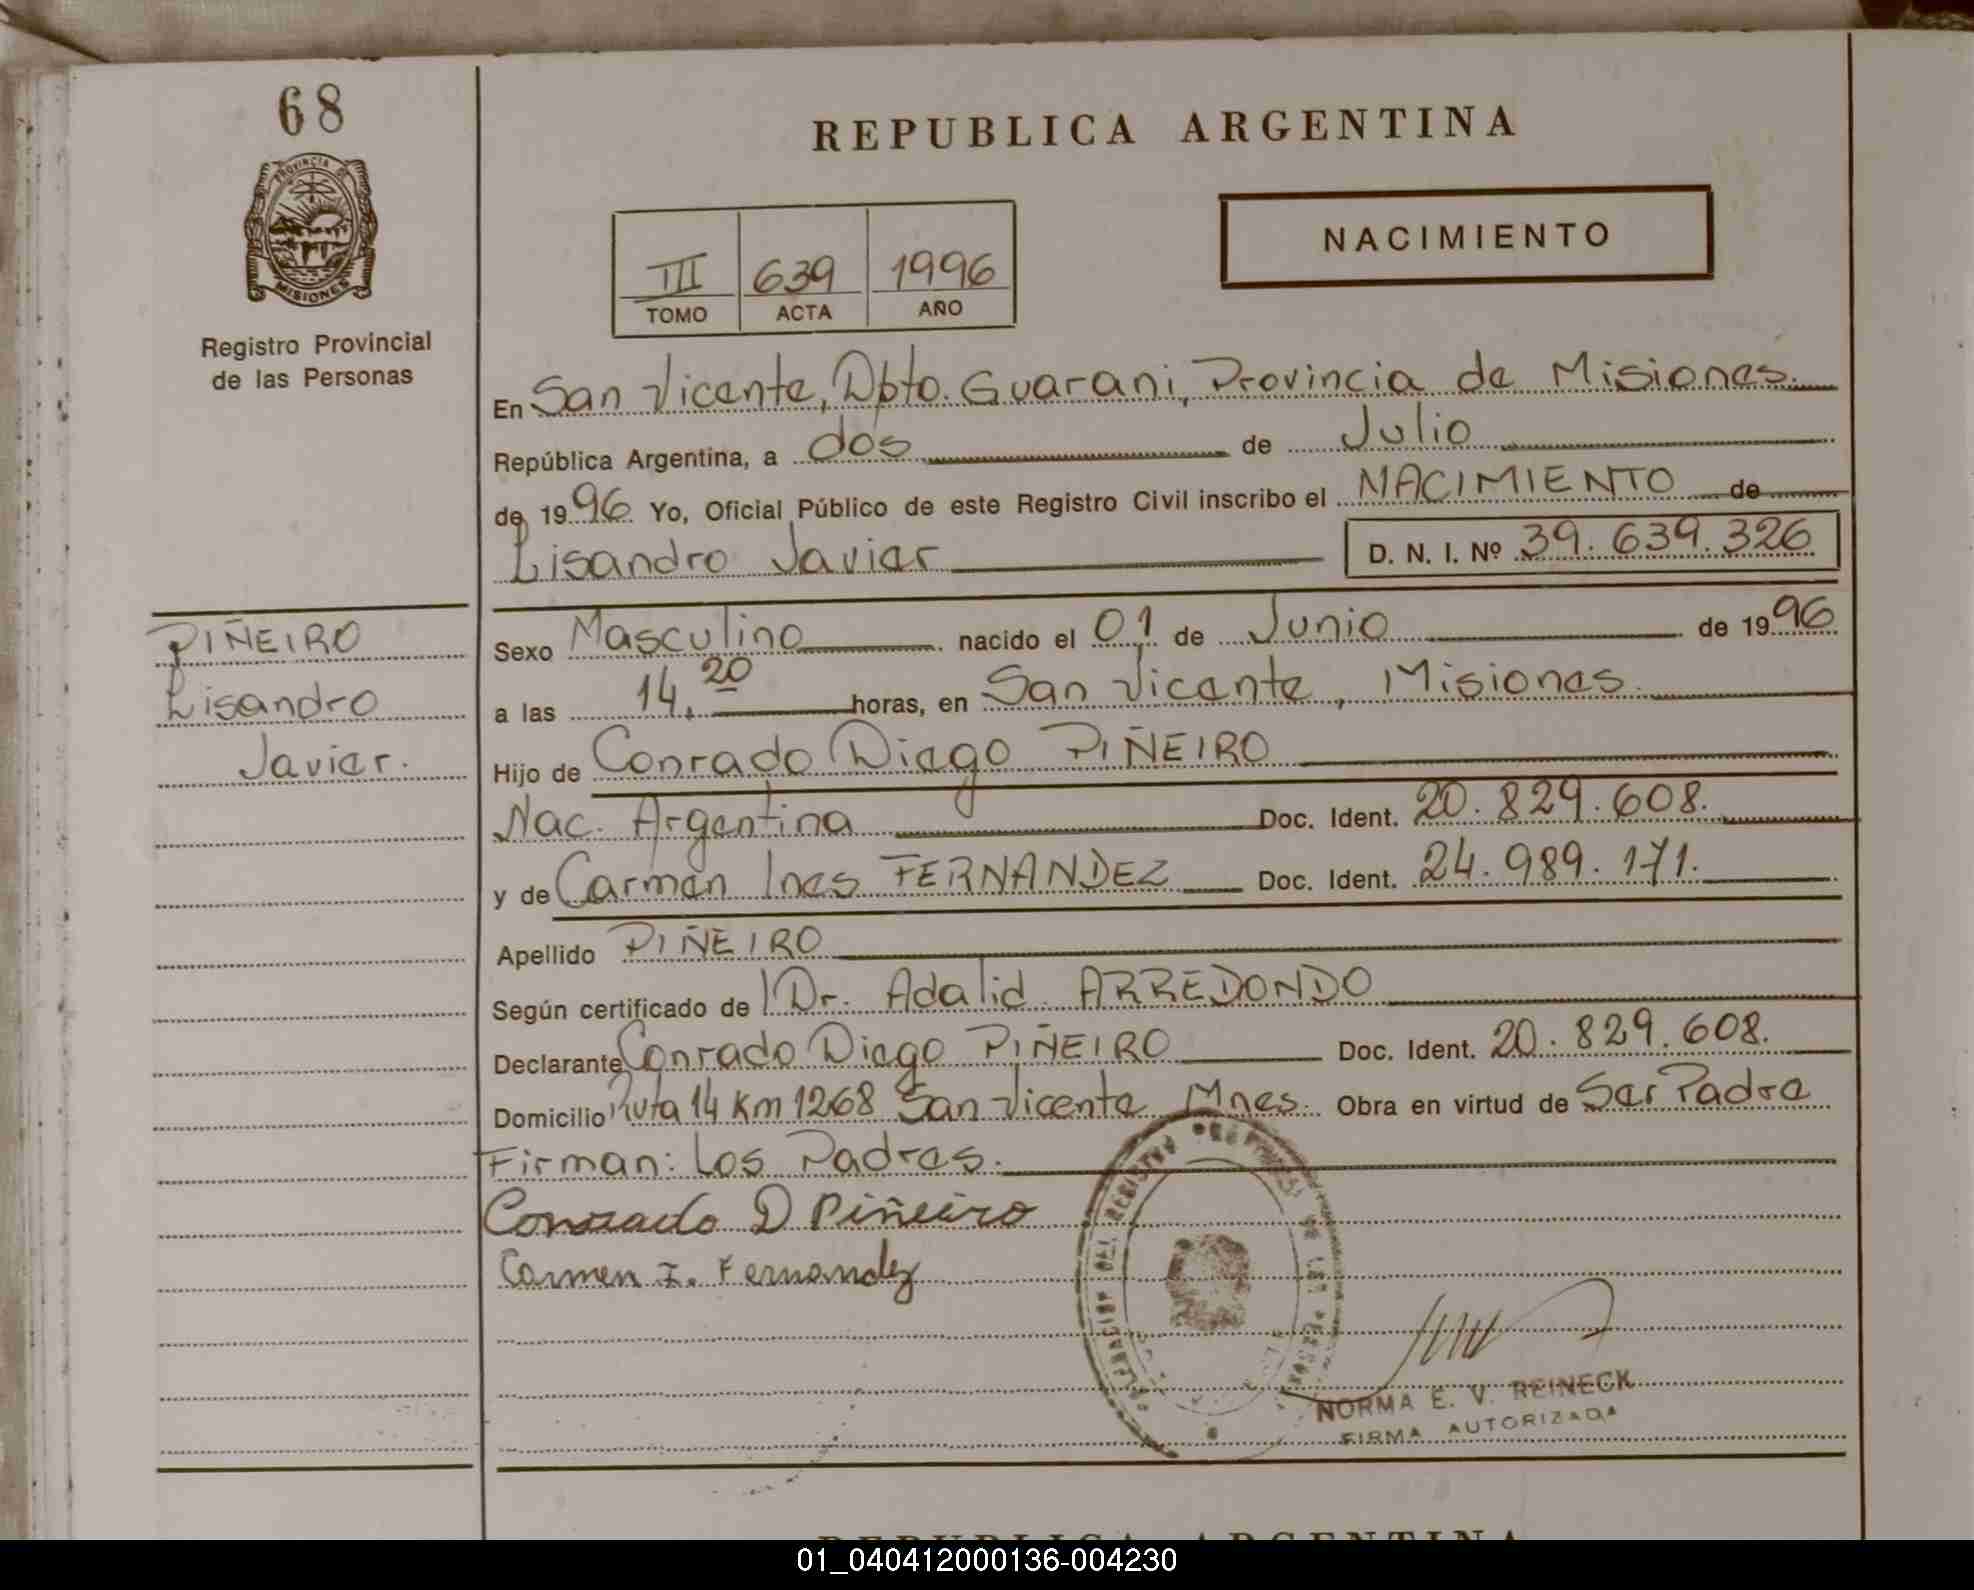 68
PROVINCIA DE
MISIONES
Registro Provincial
de las Personas
REPUBLICA ARGENTINA
NACIMIENTO
III 639 1996
TOMO ACTA AÑO
En San Vicente, Dpto. Guarani, Provincia de Misiones.
República Argentina, a dos de Julio
de 1996 Yo, Oficial Público de este Registro Civil inscribo el NACIMIENTO de
Lisandro Javier D. N. I. Nº 39.639.326
PIÑEIRO
Lisandro
Javier.
Sexo Masculino nacido el 01 de Junio de 1996
a las 14.20 horas, en San Vicente, Misiones.
Hijo de Conrado Diego PIÑEIRO
Nac. Argentina Doc. Ident. 20.829.608.
y de Carmen Ines FERNANDEZ Doc. Ident. 24.989.171.
Apellido PIÑEIRO
Según certificado de Dr. Adalid ARREDONDO
Declarante Conrado Diego PIÑEIRO Doc. Ident. 20.829.608.
Domicilio Ruta 14 Km 1268 San Vicente Mnes. Obra en virtud de Ser Padre
Firman: Los Padres.
Conrado D Piñeiro
Carmen I. Fernandez
DEL REGISTRO DE LAS
NORMA E. V. REINECK
FIRMA AUTORIZADA
REPUBLICA ARGENTINA
01_040412000136-004230